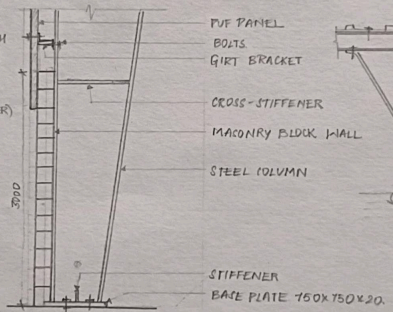 PUF PANEL
BOLTS.
GIRT BRACKET
CROSS-STIFFENER
MASONRY BLOCK WALL
STEEL COLUMN
3000
STIFFENER
BASE PLATE 750X750X20.